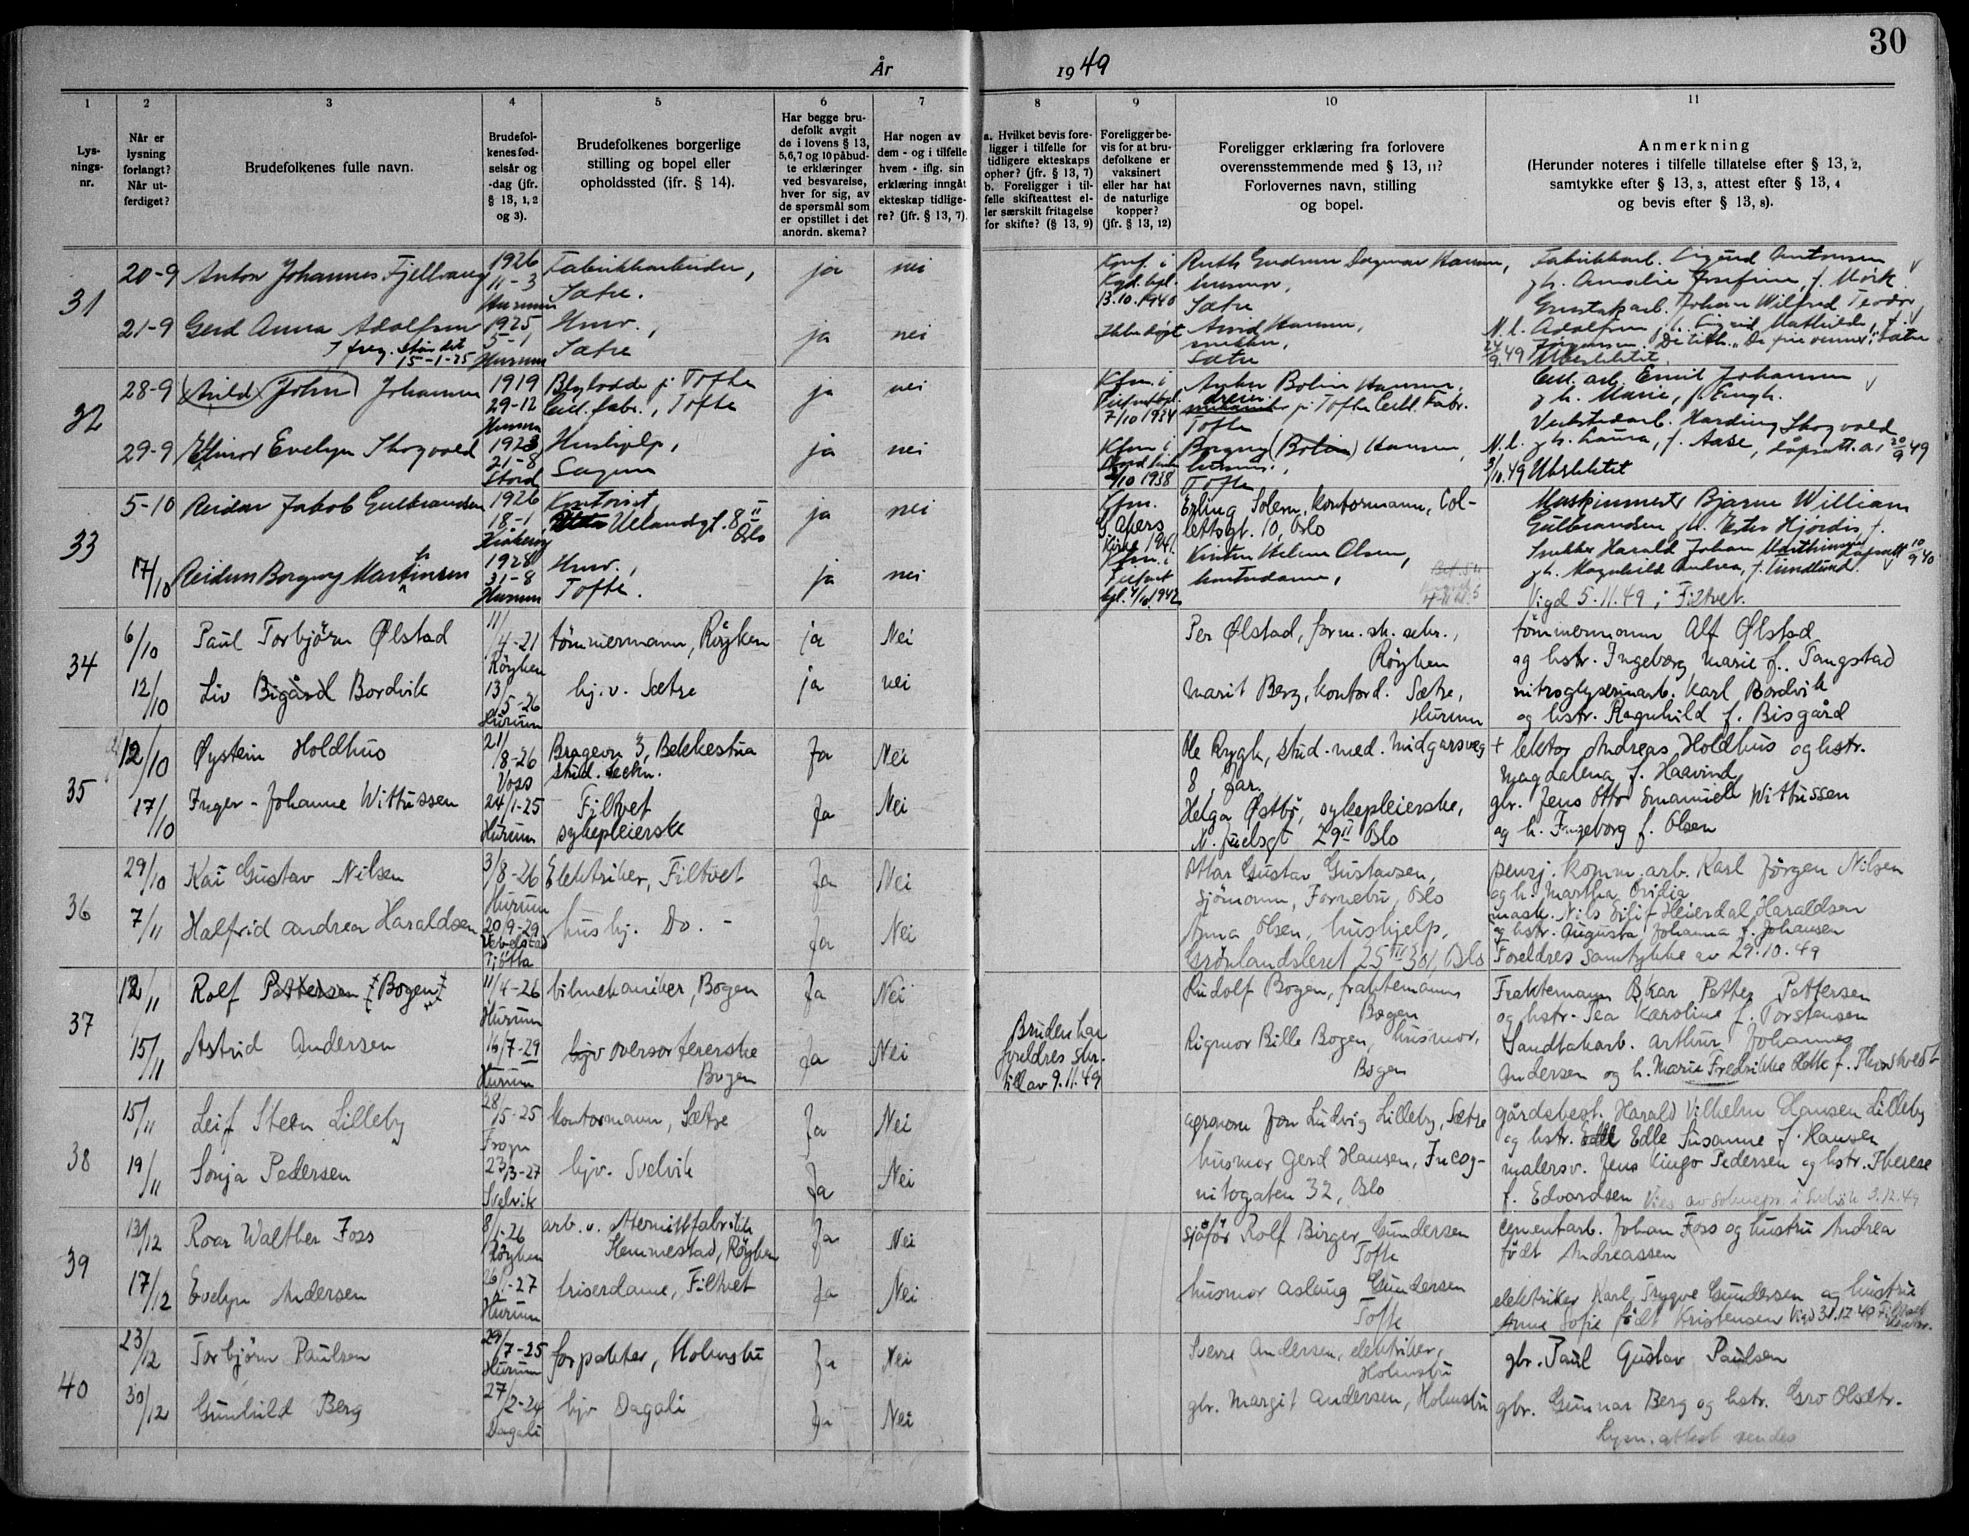 30
År 1949
1 2 3 4 5 6 7 8 9 10 11
Lys-
nings-
nr.
Når er
lysning
forlangt?
Når ut-
ferdiget?
Brudefolkenes fulle navn.
Brudefol-
kenes fød-
selsår og
-dag (jfr.
§ 13, 1, 2
og 3).
Brudefolkenes borgerlige
stilling og bopel eller
opholdssted (ifr. § 14).
Har begge bru-
defolk avgit
de i lovens § 13,
5, 6, 7 og 10 påbud-
te erklæringer
ved besvarelse,
hver for sig, av
de spørsmål som
er opstillet i det
anordn. skema?
Har nogen av
dem - og i tilfelle
hvem - iflg. sin
erklæring inngåt
ekteskap tidlige-
re? (jfr. § 13, 7).
a. Hvilket bevis fore-
ligger i tilfelle for
tidligere ekteskaps
ophør? (jfr. § 13, 7)
b. Foreligger i til-
felle skifteattest el-
ler særskilt fritagelse
for skifte? (§ 13, 9)
Foreligger be-
vis for at bru-
defolkene er
vaksinert
eller har hat
de naturlige
kopper?
(jfr. § 13, 12)
Foreligger erklæring fra forlovere
overensstemmende med § 13, 11?
Forlovernes navn, stilling
og bopel.
Anmerkning
(Herunder noteres i tilfelle tillatelse efter § 13, 2,
samtykke efter § 13, 3, attest efter § 13, 4
og bevis efter § 13, 8).
31
20-9 Anton Johannes Fjellvang
1926
11-3
Hurum
Fabrikkarbeider,
Sætre.
ja nei
Konf. i
13.10.1940
Ruth Gudrun Dagmar Hansen,
husmor,
Sætre
Fabrikkarb. Sigurd Antonsen
og h. Amalie Josefine, f. Mørk.
21-9 Gerd Anna Adolfsen
15-1-25
1925
5-1
Hurum
Husv.,
Sætre
ja nei
Ikke døpt
Arvid Hansen,
snekker,
Sætre
Johan Wilfred Teodor
N. l. Adolfsen
24/9.49 Ubeslektet.
32
28-9 Arild (John) Johansen
1919
29-12
Hurum
Blylodde p. Tofte
Cell. fabr., Tofte
ja nei
Kfm. i
7/10 1934
Bolin Hansen,
dreier
p. Tofte Cell. Fabr.
Tofte
Cell. arb. Emil Johansen
g. h. Marie, f. Engh.
29-9 Elinor Evelyn Skogvold
1923
21-8
Stord
Hushjelp,
Sagene
ja nei
Kfm. i
2/10 1938
Borgny (Bolin) Hansen,
Tofte
Verkstedarb. Harding Skogvold
N. l. g. h. Laura, f. Aase, Dåpsatt. av 20/9 49
3/10.49 Ubeslektet
33
5-10 Reidar Jakob Gulbrandsen
1926
18-1
Kontorist,
Uelandsgt. 8 II
Oslo
ja nei
Kfm.
Gl. Akers
Kirke 1941
Erling Solem, kontormann, Col-
lettsgt. 10, Oslo
Maskinmester Bjarne William
Gulbrandsen g. h. Ester Hjørdis f.
17/10 Reidun Borgny Marthinsen
1928
31-8
Hurum
Husv.,
Tofte.
ja nei
Kfm. i
Filtvet
kpl. 4/10 1942
Kirsten Helene Olsen,
kontordame,
Snekker Harald Johan Marthinsen
g. h. Magnhild Andrea, f. Lundlund.
Vigd 5.11.49 i Filtvet.
34
6/10 Paul Torbjörn Ølstad
11/4-21
Röyken
tömmermann, Röyken
ja Nei
Per Ølstad, form. sk. sekr.,
Röyken
tömmermann Alf Ølstad
og hstr. Ingeborg Marie f. Tangstad
12/10 Liv Bigård Bordvik
13/5-26
Hurum
hj.v. Sætre
ja nei
Marit Berg, kontord. Sætre,
Hurum
nitroglyserinarb. Karl Bordvik
og hstr. Ragnhild f. Bisgård
35
12/10 Øystein Holdhus
21/8-26
Voss
Bragevn 3, Bekkestua
stud. techn.
Ja Nei
Ole Rygh, stud. med. Midgarsveg
8, Jar.
+ lektor Andreas Holdhus og hstr.
Magdalena f. Haavind
17/10 Inger-Johanne Wittussen
24/1-25
Hurum
Filtvet
sykepleierske
Ja Nei
Helga Østbö, sykepleierske,
N. Juelsgt 29 II Oslo
gbr. Jens Otto Emanuel Wittussen
og h. Ingeborg f. Olsen
36
29/10 Kai Gustav Nilsen
3/8-26
Hurum
Elektriker, Filtvet
Ja Nei
Ottar Gustav Gustavsen,
sjömann, Fornebu, Oslo
pensj. komm. arb. Karl Jörgen Nilsen
og h. Martha Ovidia
7/11 Halfrid Andrea Haraldsen
20/9-29
Vevelstad
Tjötta
hushj. Do. -
Ja Nei
Anna Olsen, hushjelp,
Grönlandsleret 25 III 301, Oslo
mask. Nils Eilif Heierdal Haraldsen
og hstr. Augusta Johanna f. Johansen
Foreldres samtykke av 29.10.49
37
12/11 Rolf Pettersen Bogen
11/4-26
Hurum
bilmekaniker, Bogen
Ja Nei
Rudolf Bogen, fraktemann
Bogen
Fraktemann Oskar Petter Pettersen
og hstr. Tea Karoline f. Torstensen
15/11 Astrid Andersen
16/7-29
Hurum
hjv oversorfererske
Bogen
Ja Nei
Bruden har
foreldres skr.
till av 9.11.49
Rigmor Bille Bogen, husmor,
Bogen
Sandtakarb. Arthur Johannes
Andersen og h. Marie Fredrikke Hette f. Thorkvedt
38
15/11 Leif Steen Lilleby
28/5-25
Frogn
kontormann, Sætre
Ja Nei
agronom Jon Ludvig Lilleby, Sætre
gårdsbest. Harald Vilhelm Hansen Lilleby
og hstr. Edle Susanne f. Hansen
19/11 Sonja Pedersen
23/3-27
Svelvik
hjv. Svelvik
Ja Nei
husmor Gerd Hansen, Incog-
nitogaten 32, Oslo
malersv. Jens Kingo Pedersen og hstr. Therese
f. Edvardsen Vies av sognepr. i Svelvik 3.12.49
39
13/12 Roar Walther Foss
8/1-26
Röyken
arb. v. Eternittfabrikk
Slemmestad, Röyken
Ja Nei
sjåför Rolf Birger Gundersen
Tofte
cementarb. Johan Foss og hustru Andrea
födt Andreassen
17/12 Evelyn Andersen
26/1-27
Hurum
friserdame, Filtvet
Ja Nei
husmor Aslaug Gundersen
Tofte
elektriker Karl Trygve Gundersen og hustru
Anne Sofie födt Kristensen Vigd 31.12.49 Filtvet
40
23/12 Torbjörn Paulsen
29/7-25
Hurum
forpakter, Holmsbu
Ja Nei
Sverre Andersen, elektriker,
Holmsbu
gbr. Paul Gustav Paulsen
30/12 Gunhild Berg
27/2-24
Dagali
hjv Dagali
Ja Nei
gbr. Margit Andersen, Holmsbu
gbr. Gunnar Berg og hstr. Gro Olsdtr.
Lysn. attest sendes